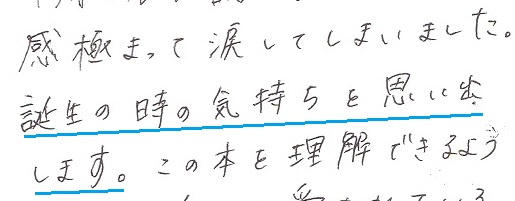 感極まって涙してしまいました。
誕生の時の気持ちを思い出
します。この本を理解できるよう